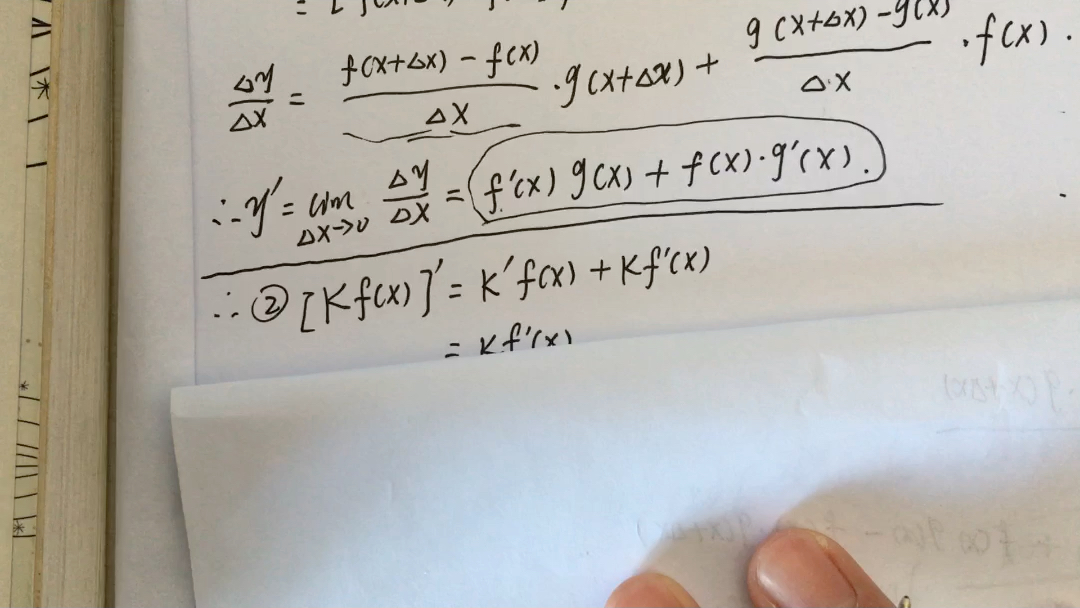 Δy/Δx = (f(x+Δx) - f(x))/Δx · g(x+Δx) + (g(x+Δx) - g(x))/Δx · f(x).
∴ y' = lim Δx→0 Δy/Δx = f'(x) g(x) + f(x)·g'(x).
∴ ② [Kf(x)]' = K'f(x) + Kf'(x)
= Kf'(x)